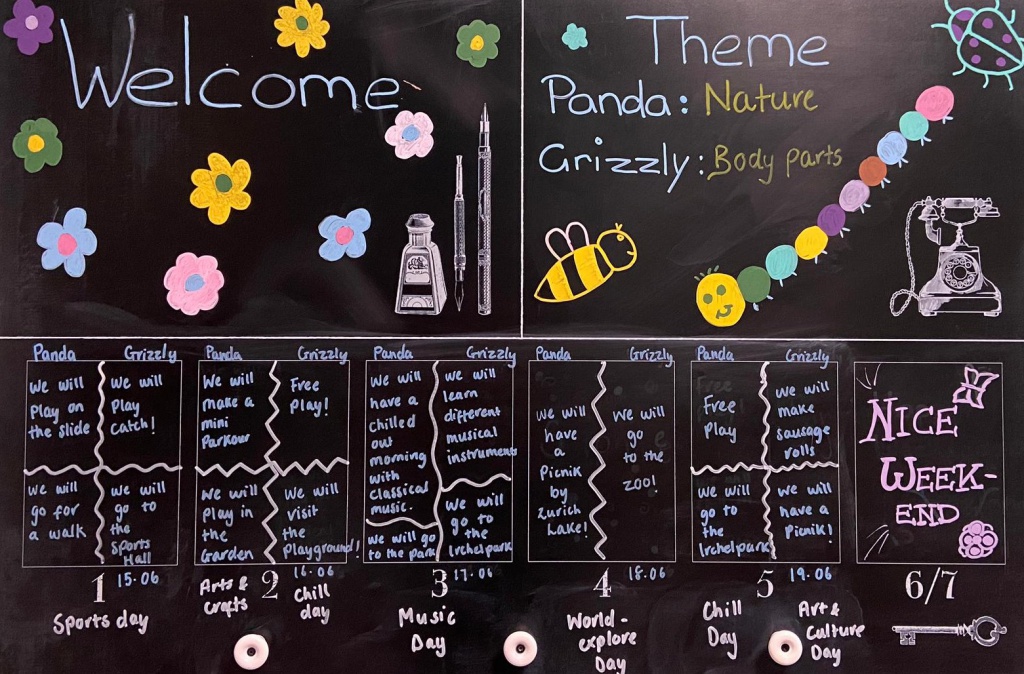 Welcome
Theme
Panda: Nature
Grizzly: Body parts
Panda
Grizzly
We will
Play on
the slide
We will
Play
Catch!
We will
go for
a walk
We will
go to
the
Sports
Hall
1
15.06
Sports day
Panda
Grizzly
We will
make a
mini
Parkour
Free
Play!
We will
Play in
the
Garden
We will
visit
the
Playground!
Arts &
Crafts
2
16.06
Chill
day
Panda
Grizzly
We will
have a
chilled
out
morning
with
classical
music.
We will
learn
different
musical
instruments
We will go
to the park
We will
go to
the
Irchelpark
3
17.06
Music
Day
Panda
Grizzly
We will
have
a
Picnik
by
Zurich
Lake!
We will
go
to the
ZOO!
4
18.06
World-
explore
Day
Panda
Grizzly
Free
Play
We will
make
sausage
rolls
We will
go to
the
Irchelpark
We will
have a
Picnik!
5
19.06
Chill
Day
Art &
Culture
Day
NICE
WEEK-
END
6/7